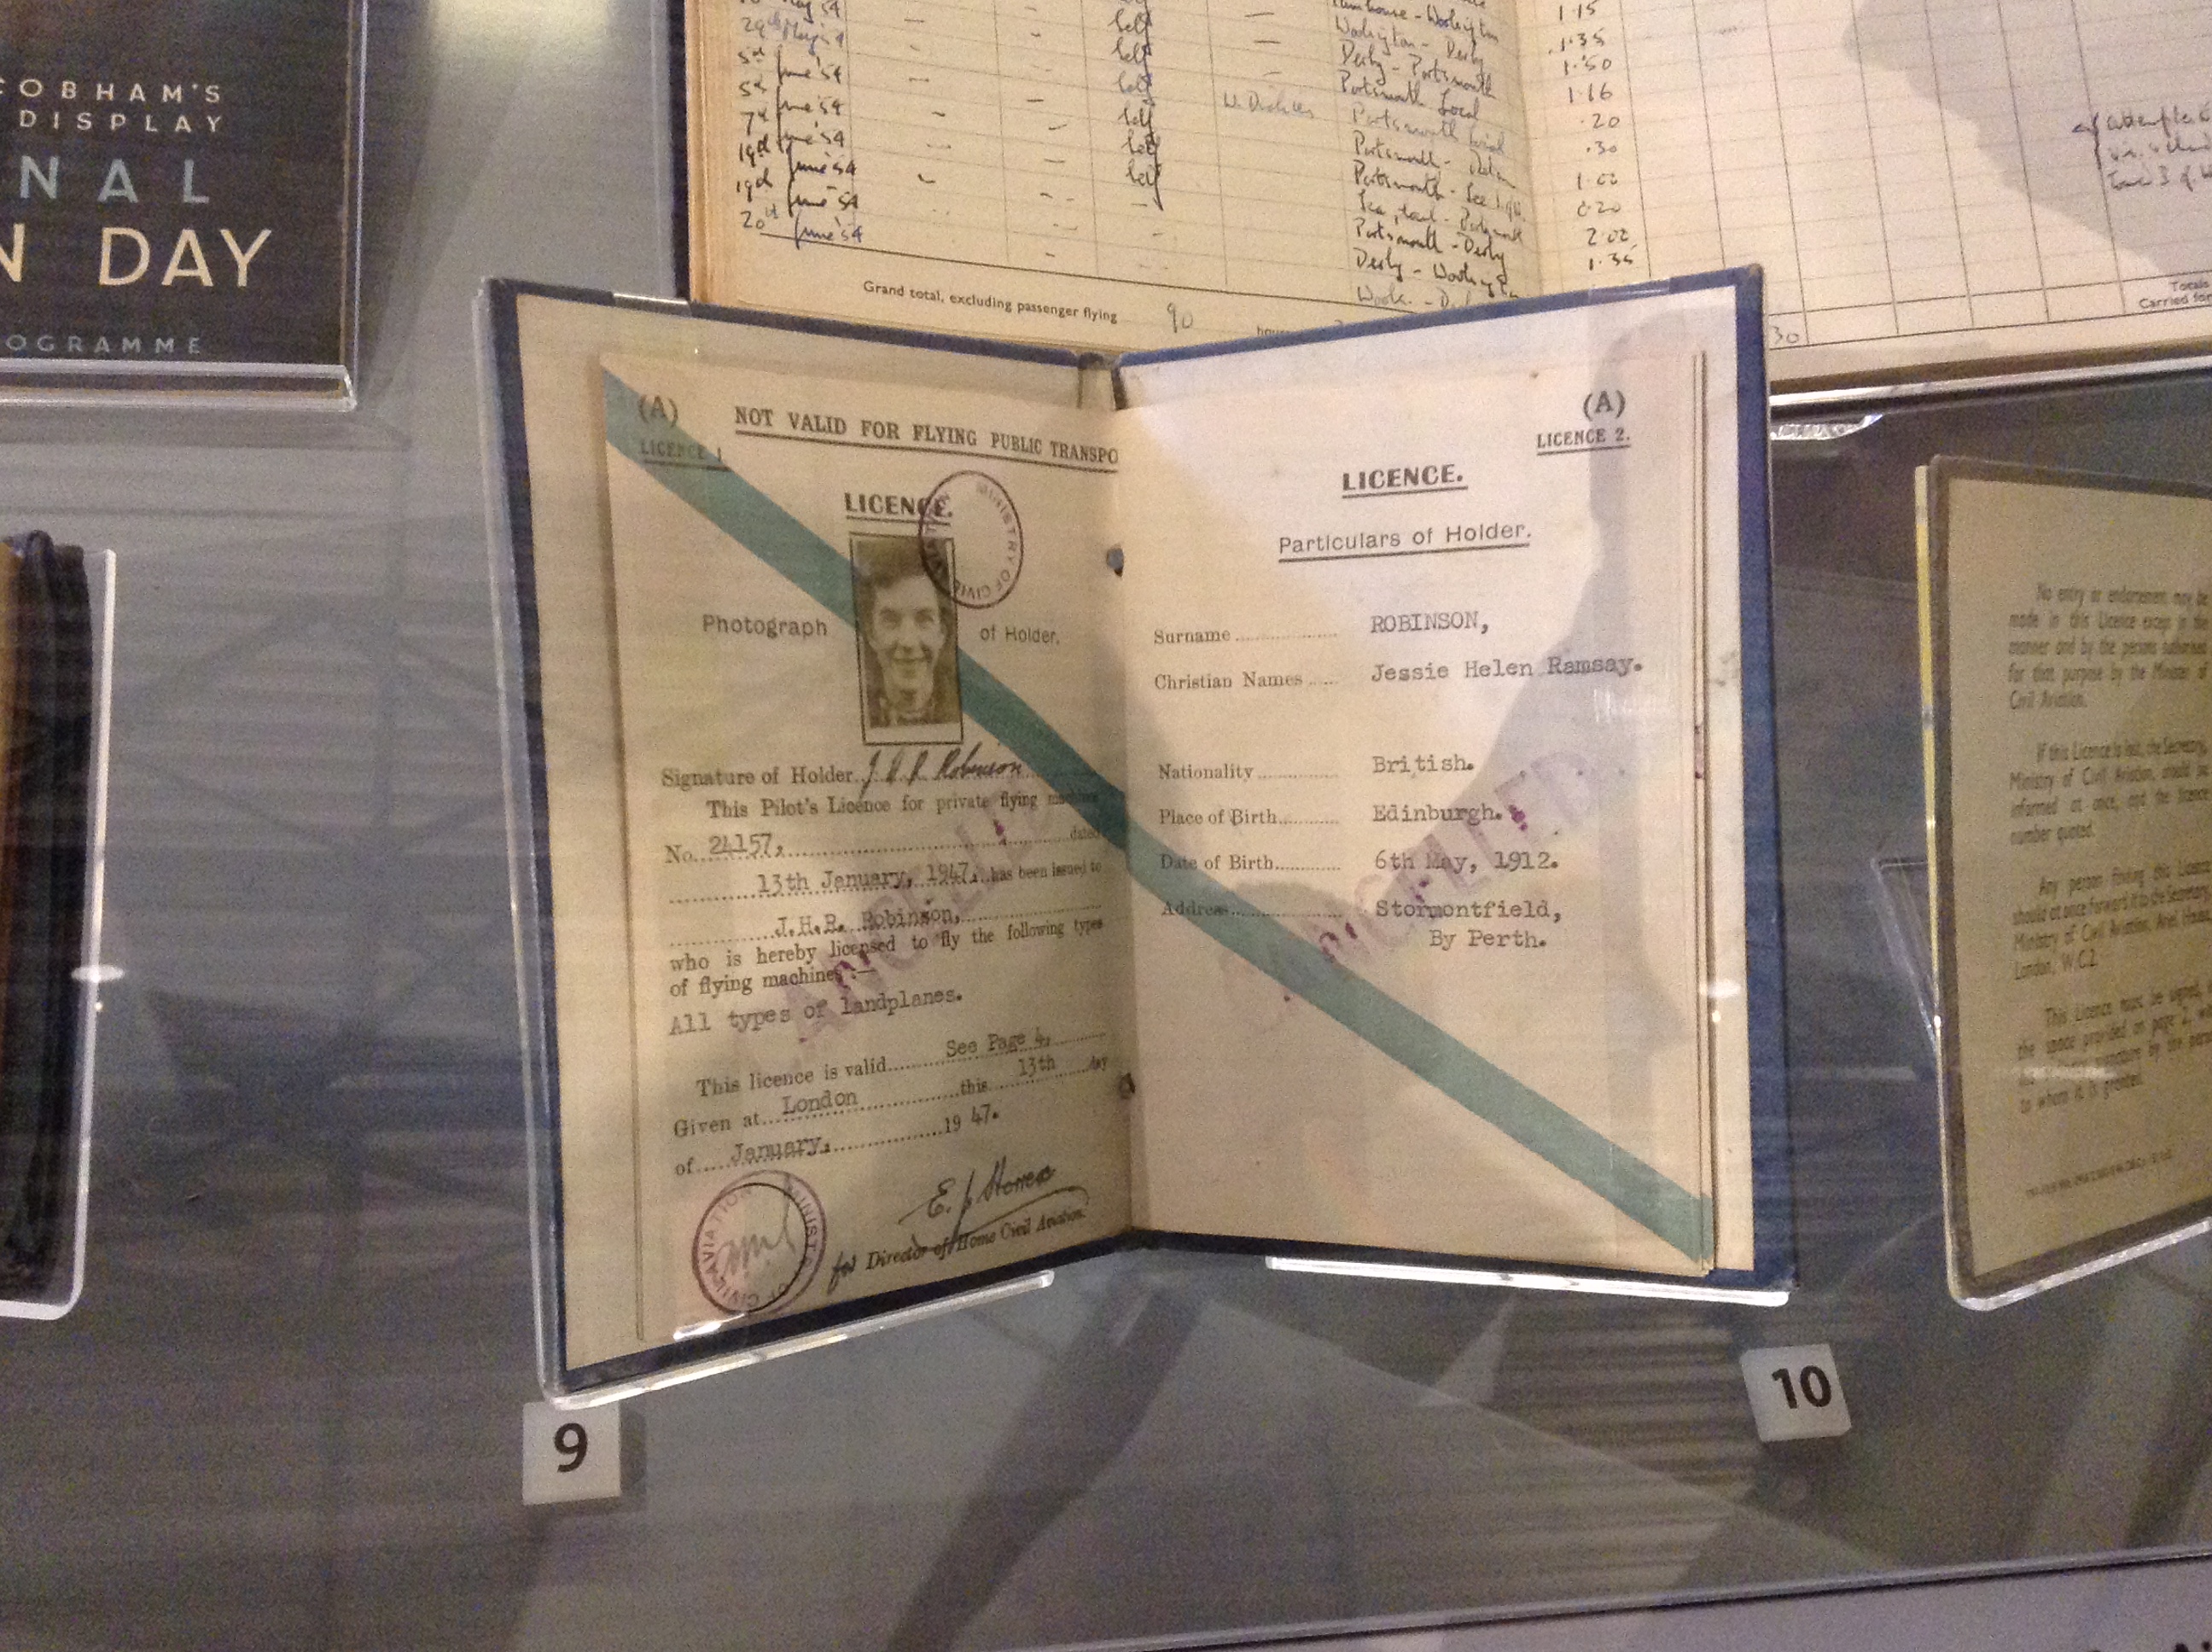 COBHAM'S
DISPLAY
NAL
N DAY
OGRAMME
29th May 54 — — Self — Woolsington - Derby 1.35
5th June '54 — — Self — Derby - Portsmouth 1.50
5th June '54 — — Self Portsmouth Local 1.16
7th June '54 — — Self Portsmouth Local .20
19th June '54 — — Self Portsmouth - .30
19th June '54 — — Self Portsmouth - 1.02
20th June '54 - Portsmouth 0.20
Portsmouth - Derby 2.02
Derby - Woolsington 1.35
Grand total, excluding passenger flying 90
30
Totals
Carried for
(A)
LICENCE 1
NOT VALID FOR FLYING PUBLIC TRANSPO
LICENCE.
MINISTRY OF CIVIL AVIATION
Photograph of Holder.
Signature of Holder J H R Robinson
This Pilot's Licence for private flying machines
No. 24157, dated
13th January, 1947. has been issued to
J.H.R. Robinson,
who is hereby licensed to fly the following types
of flying machine :—
All types of landplanes.
This licence is valid See Page 4.
Given at London this 13th day
of January. 1947.
MINISTRY OF CIVIL AVIATION
for Director of Home Civil Aviation.
CANCELLED
(A)
LICENCE 2.
LICENCE.
Particulars of Holder.
Surname ROBINSON,
Christian Names Jessie Helen Ramsay.
Nationality British.
Place of Birth Edinburgh.
Date of Birth 6th May, 1912.
Address Stormontfield,
By Perth.
CANCELLED
No entry or endorsement may be
made in this Licence except in the
manner and by the persons authorised
for that purpose by the Minister of
Civil Aviation.
If this Licence is lost, the Secretary,
Ministry of Civil Aviation, should be
informed at once, and the licence
number quoted.
Any person finding this Licence
should at once forward it to the Secretary
Ministry of Civil Aviation, Ariel House
London, W.C.2.
This Licence must be signed, in
the space provided on page 2, with
signature by the person
to whom it is granted.
9
10